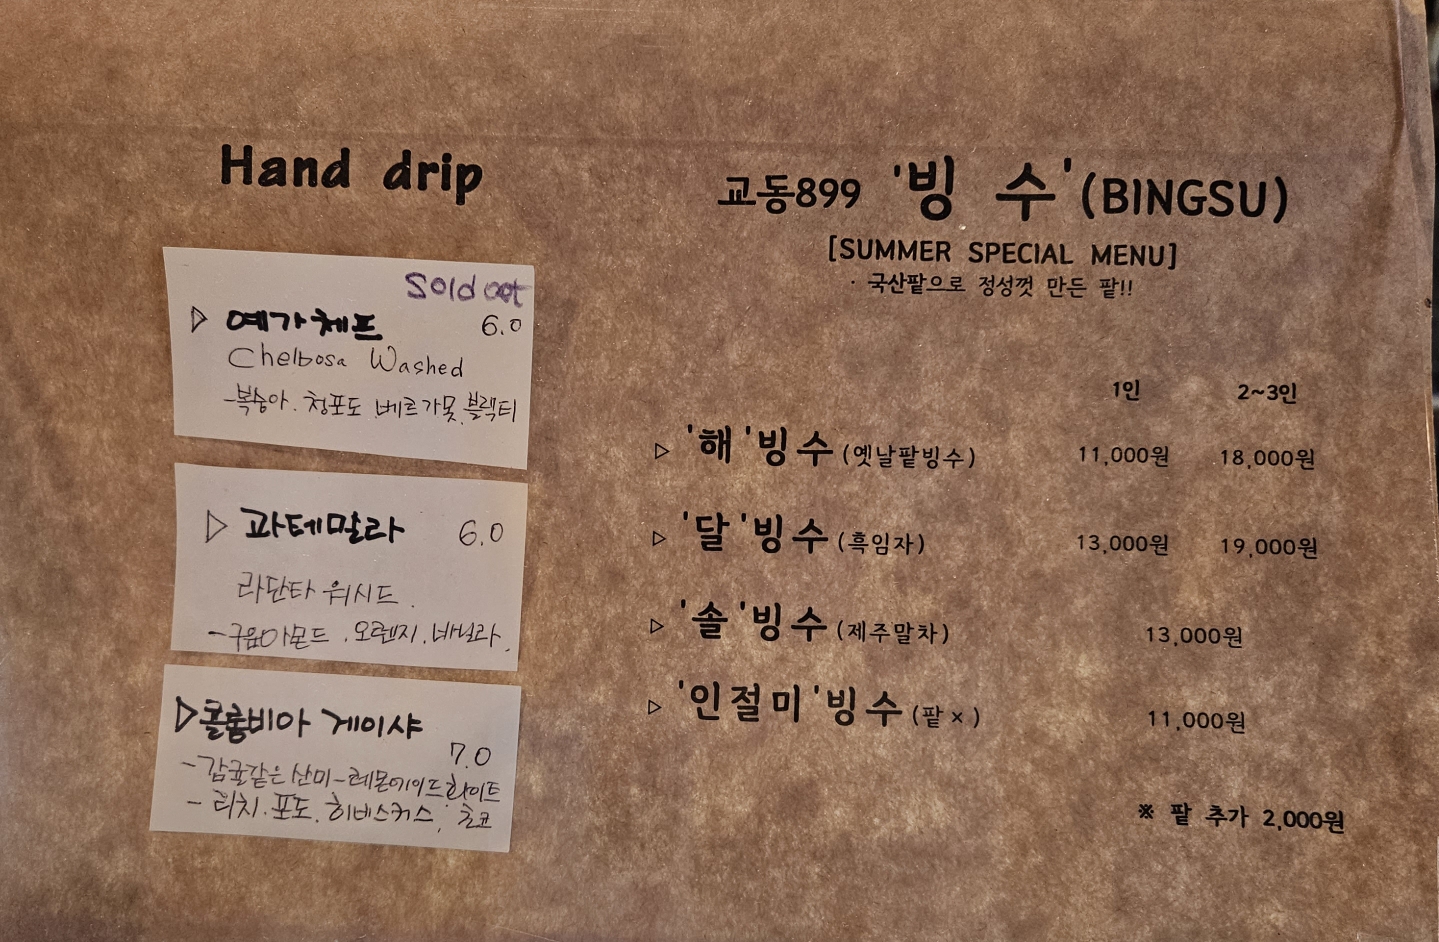 Hand drip
Sold out
▷ 예가체프 6.0
Chelbosa Washed
-복숭아. 청포도. 베르가못. 블랙티
▷ 과테말라 6.0
라단타 워시드.
-구운아몬드. 오렌지. 바닐라.
▷콜롬비아 게이샤
7.0
-감귤같은 산미-레몬에이드 화이트
- 리치. 포도. 히비스커스, 초코
교동899 '빙 수'(BINGSU)
[SUMMER SPECIAL MENU]
· 국산팥으로 정성껏 만든 팥!!
1인 2~3인
▷ '해'빙수 (옛날팥빙수) 11,000원 18,000원
▷ '달'빙수 (흑임자) 13,000원 19,000원
▷ '솔'빙수 (제주말차) 13,000원
▷ '인절미'빙수 (팥×) 11,000원
※ 팥 추가 2,000원